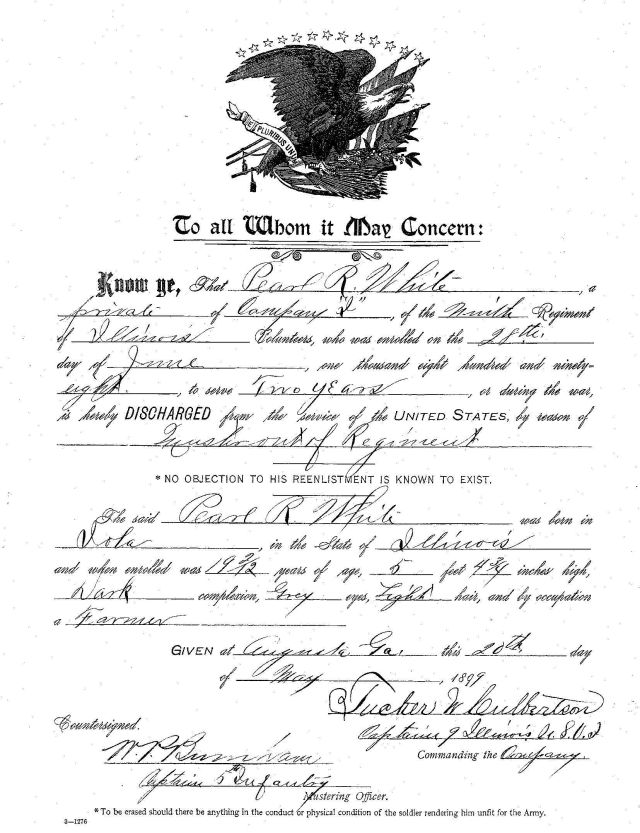 E PLURIBUS UNUM
To all Whom it May Concern:
Know ye, That Pearl R. White, a
private of Company "I", of the Ninth Regiment
of Illinois Volunteers, who was enrolled on the 28th.
day of June, one thousand eight hundred and ninety-
eight, to serve Two years, or during the war,
is hereby DISCHARGED from the service of the UNITED STATES, by reason of
Muster out of Regiment
* NO OBJECTION TO HIS REENLISTMENT IS KNOWN TO EXIST.
The said Pearl R. White was born in
Iola, in the State of Illinois
and when enrolled was 19 years of age, 5 feet 4 3/4 inches high,
Dark complexion, Grey eyes, Light hair, and by occupation
a Farmer
GIVEN at Augusta Ga. this 20th. day
of May, 1899
Tucker W Culbertson
Captain 9 Illinois U.S.V.I
Countersigned. Commanding the Company.
W. P. Burnham
Captain 5th Infantry
Mustering Officer.
* To be erased should there be anything in the conduct or physical condition of the soldier rendering him unfit for the Army.
3—1276